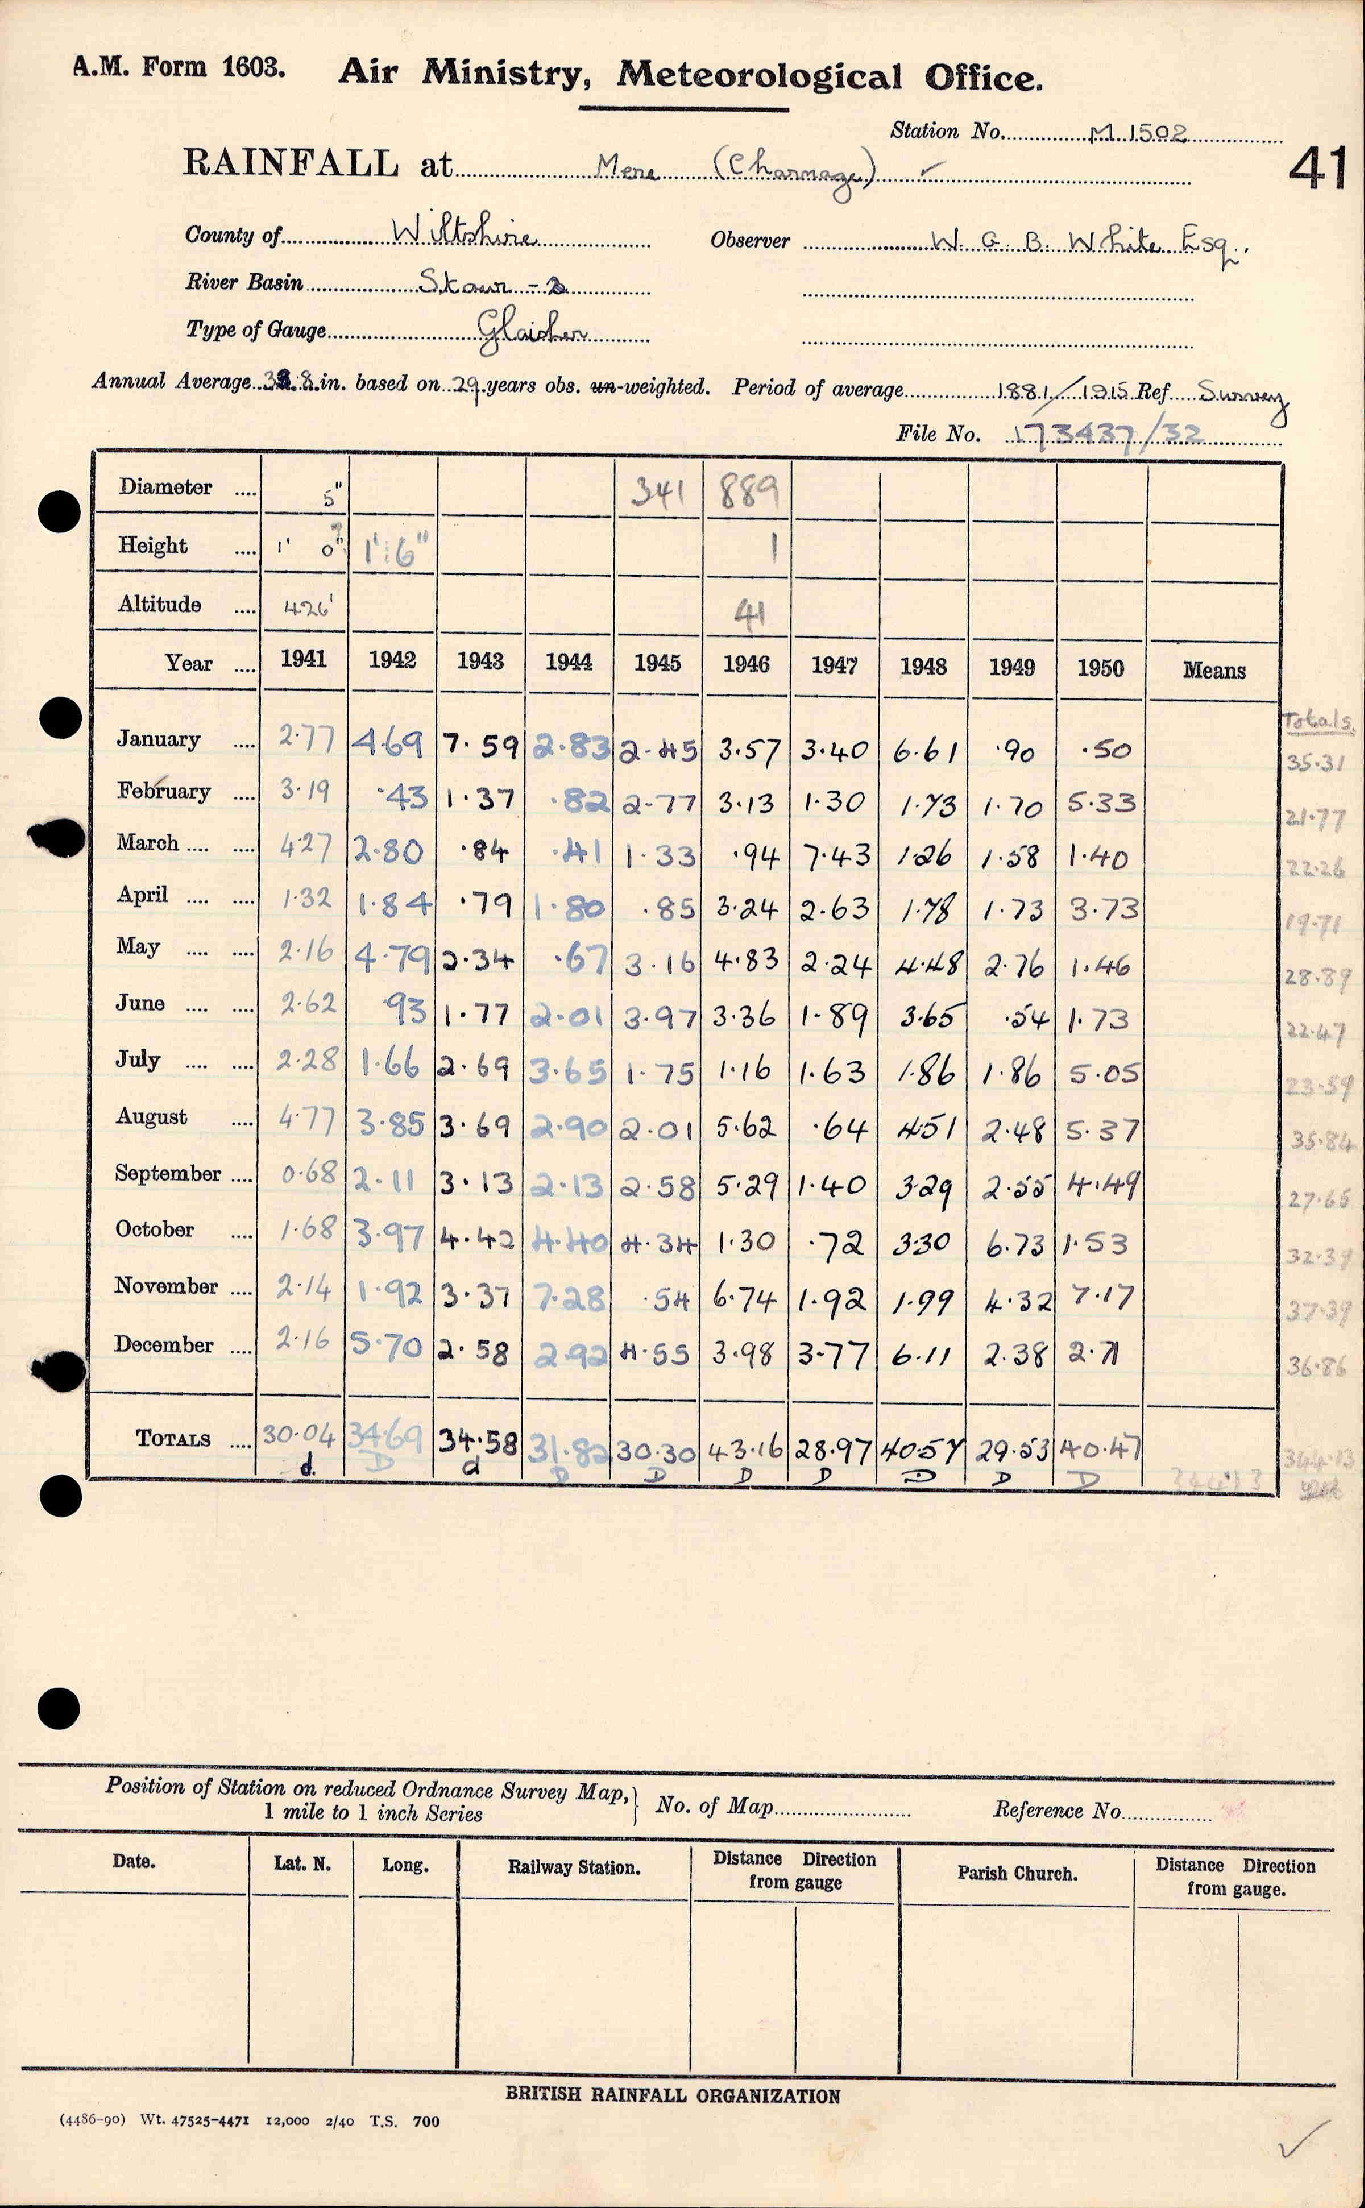 A.M. Form 1603. Air Ministry, Meteorological Office.
Station No. M 1502
41
RAINFALL at Mere (Charnage) ✓
County of Wiltshire Observer W. G. B. White Esq.
River Basin Stour - 3
Type of Gauge Glaisher
Annual Average 38.8 in. based on 29 years obs. un-weighted. Period of average 1881/1915 Ref Survey
File No. 173437/32
Diameter .... 5" 341 889
Height .... 1' 0"? 1':6" 1
Altitude .... 426' 41
Year .... 1941 1942 1943 1944 1945 1946 1947 1948 1949 1950 Means
Totals
January .... 2.77 4.69 7.59 2.83 2.45 3.57 3.40 6.61 .90 .50 35.31
February .... 3.19 .43 1.37 .82 2.77 3.13 1.30 1.73 1.70 5.33 21.77
March .... .... 4.27 2.80 .84 .41 1.33 .94 7.43 1.26 1.58 1.40 22.26
April .... .... 1.32 1.84 .79 1.80 .85 3.24 2.63 1.78 1.73 3.73 19.71
May .... .... 2.16 4.79 2.34 .67 3.16 4.83 2.24 4.48 2.76 1.46 28.89
June .... .... 2.62 .93 1.77 2.01 3.97 3.36 1.89 3.65 .54 1.73 22.47
July .... .... 2.28 1.66 2.69 3.65 1.75 1.16 1.63 1.86 1.86 5.05 23.59
August .... 4.77 3.85 3.69 2.90 2.01 5.62 .64 4.51 2.48 5.37 35.84
September .... 0.68 2.11 3.13 2.13 2.58 5.29 1.40 3.29 2.55 4.49 27.65
October .... 1.68 3.97 4.42 4.40 4.34 1.30 .72 3.30 6.73 1.53 32.39
November .... 2.14 1.92 3.37 7.28 .54 6.74 1.92 1.99 4.32 7.17 37.39
December .... 2.16 5.70 2.58 2.92 4.55 3.98 3.77 6.11 2.38 2.71 36.86
TOTALS .... 30.04 34.69 34.58 31.82 30.30 43.16 28.97 40.57 29.53 40.47 344.13
d. D d D D D D D D D 344.13
Position of Station on reduced Ordnance Survey Map,} No. of Map Reference No.
1 mile to 1 inch Series
Date. Lat. N. Long. Railway Station. Distance Direction from gauge Parish Church. Distance Direction from gauge.
BRITISH RAINFALL ORGANIZATION
(4486-90) Wt. 47525-4471 12,000 2/40 T.S. 700
✓